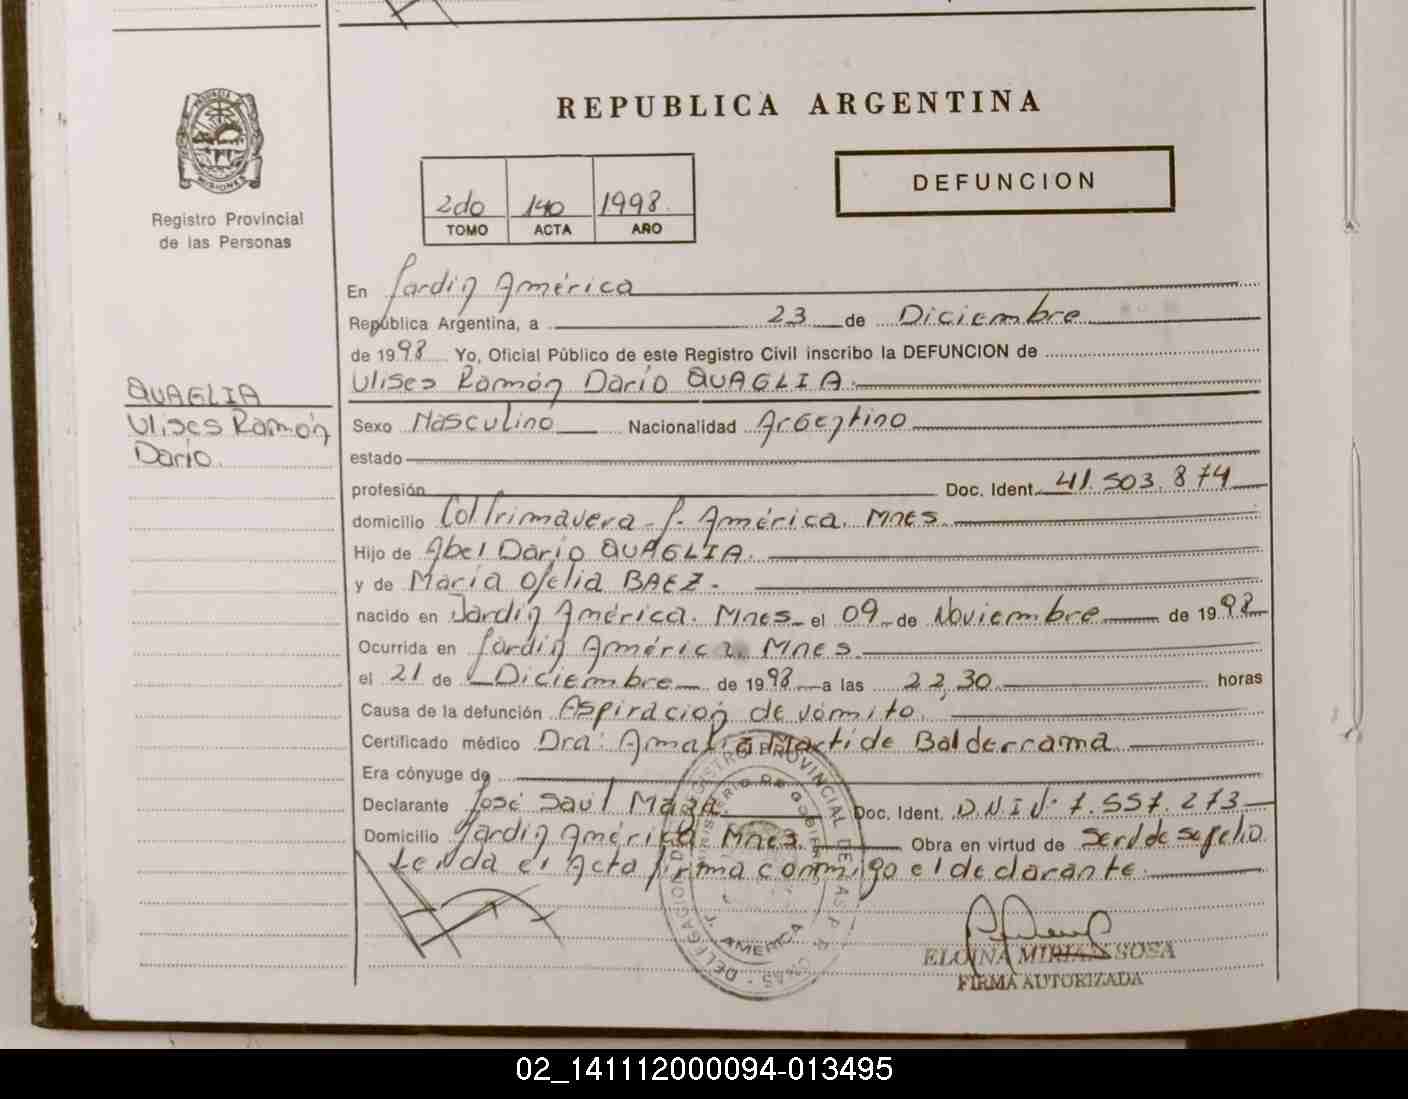 REPUBLICA ARGENTINA
PROVINCIA DE
MISIONES
Registro Provincial
de las Personas
2do 140 1998.
TOMO ACTA AÑO
DEFUNCION
En Jardín América
República Argentina, a 23 de Diciembre
de 1998 Yo, Oficial Público de este Registro Civil inscribo la DEFUNCION de
Ulises Ramón Darío QUAGLIA.
QUAGLIA
Ulises Ramón
Darío.
Sexo Masculino Nacionalidad Argentino
estado
profesión Doc. Ident. 41.503.874
domicilio Col Primavera - J. América. Mnes.
Hijo de Abel Darío QUAGLIA.
y de María Ofelia BAEZ.
nacido en Jardín América. Mnes. el 09 de Noviembre de 1998
Ocurrida en Jardín América. Mnes.
el 21 de Diciembre de 1998 a las 22,30 horas
Causa de la defunción Aspiración de vómito.
Certificado médico Dra: Amalia Matilde Balderrama
Era cónyuge de
Declarante José Saúl Doc. Ident. D.N.I. Nº 7.557.273
Domicilio Jardín América Mnes. Obra en virtud de Serv. de sepelio.
Leída el Acta firma conmigo el declarante.
REGISTRO PROVINCIAL DE LAS PERSONAS - DELEGACION
MINISTERIO DE GOBIERNO
J. AMERICA
ELOINA MIRIAN SOSA
FIRMA AUTORIZADA
02_141112000094-013495